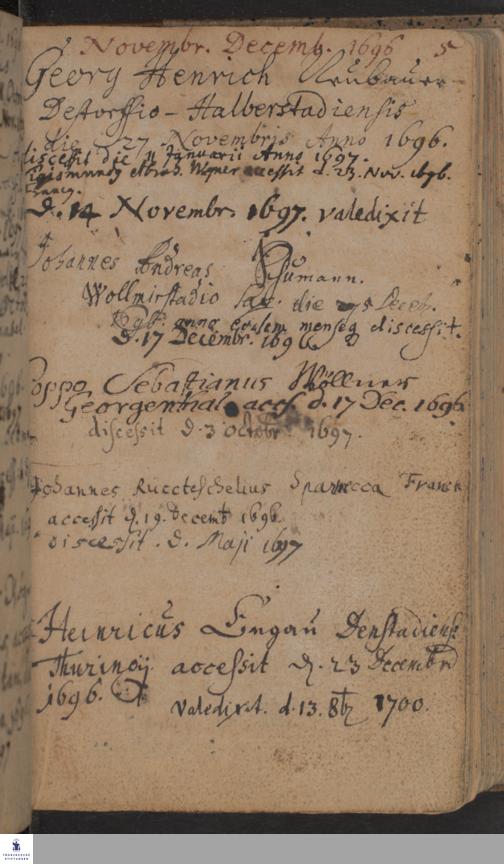 Novembr. Decemb. 1696 5
Georg Henrich Neubauer
Destorffio-Halberstadiensis
die 27 Novembris Anno 1696.
discessit die 11 Januarii Anno 1697.
accessit d. 23. Nov. 1696.
d. 14 Novembr. 1697. valedixit
Johannes Andreas Schumann.
Wollmirstadio Sax. die Decebr.
anno eodem menseq discessit.
d. 17 Decembr. 1696
Poppo Sebastianus Wöllner
Georgenthal. accs. d. 17 Dec. 1696
discessit d. 3 octobr 1697.
Johannes Ruccteschelius Franc
accessit d. 19. Decemb 1696
discessit. d. Maji 1697
Heinricus Engau Denstadiens
Thuring accessit d. 23 Decembr
1696.
valedixit. d. 13. 8b 1700.
FRANCKESCHE STIFTUNGEN